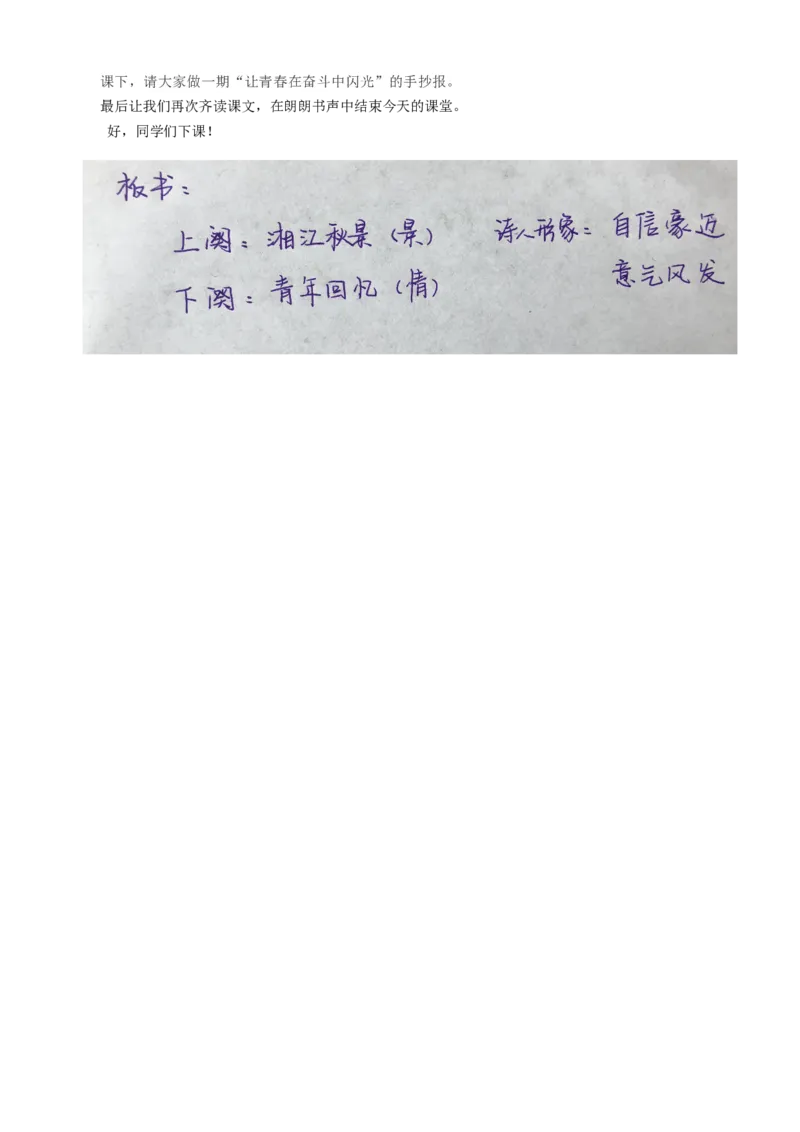 课下，请大家做一期“让青春在奋斗中闪光”的手抄报。
最后让我们再次齐读课文，在朗朗书声中结束今天的课堂。
好，同学们下课！
板书：
上阕：湘江秋景（景） 诗人形象：自信豪迈
下阕：青年回忆（情） 意气风发